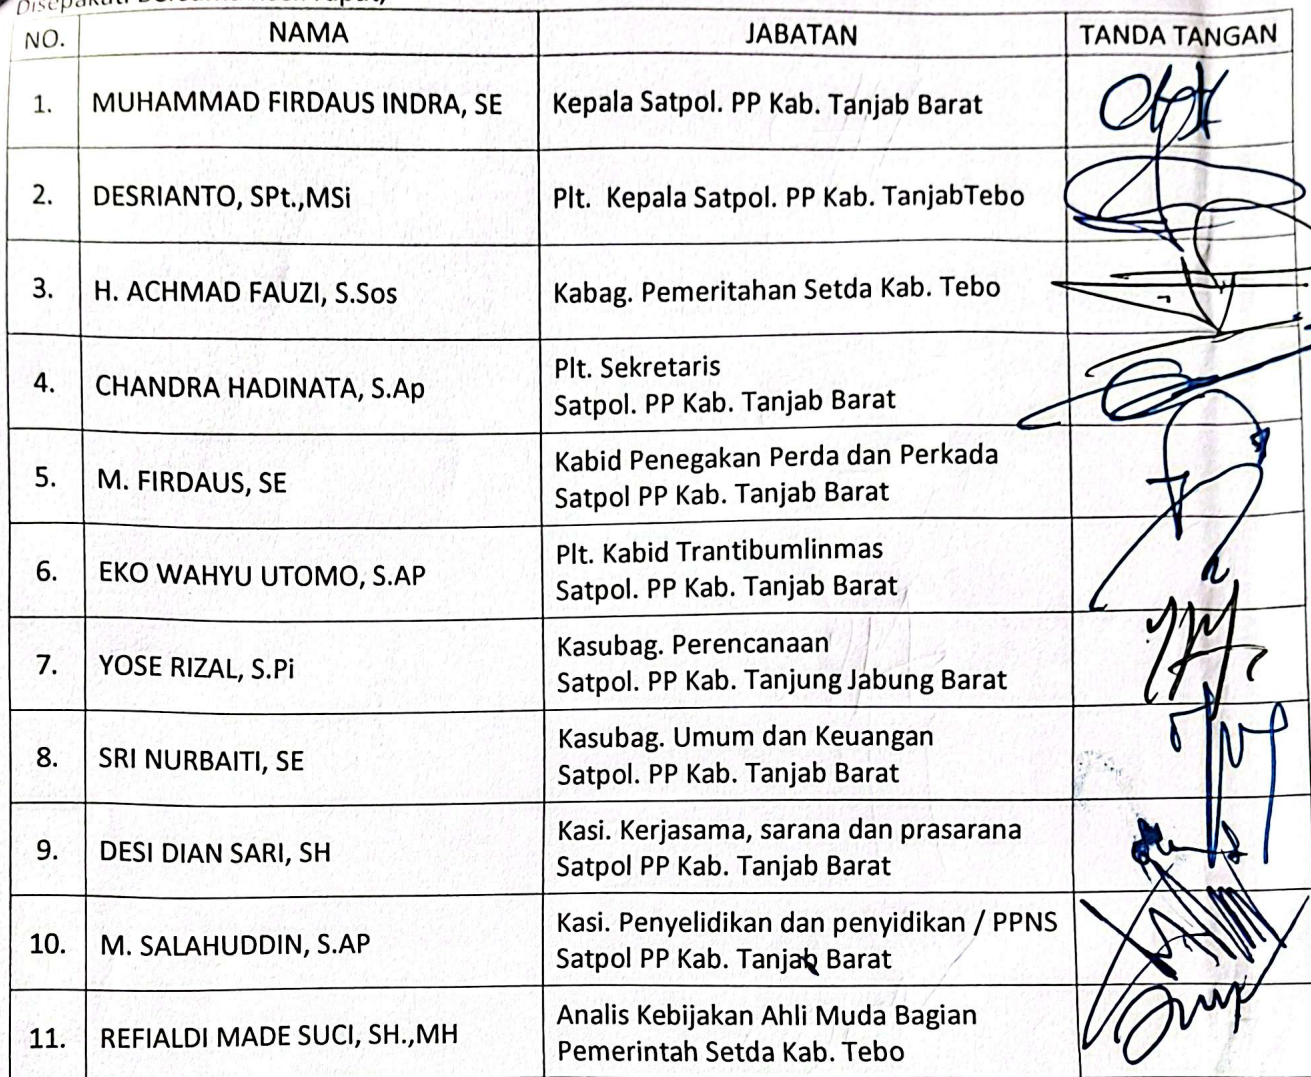 Disepakati Bersama
NO. NAMA JABATAN TANDA TANGAN
1. MUHAMMAD FIRDAUS INDRA, SE Kepala Satpol. PP Kab. Tanjab Barat
2. DESRIANTO, SPt.,MSi Plt. Kepala Satpol. PP Kab. TanjabTebo
3. H. ACHMAD FAUZI, S.Sos Kabag. Pemeritahan Setda Kab. Tebo
4. CHANDRA HADINATA, S.Ap Plt. Sekretaris
Satpol. PP Kab. Tanjab Barat
5. M. FIRDAUS, SE Kabid Penegakan Perda dan Perkada
Satpol PP Kab. Tanjab Barat
6. EKO WAHYU UTOMO, S.AP Plt. Kabid Trantibumlinmas
Satpol. PP Kab. Tanjab Barat
7. YOSE RIZAL, S.Pi Kasubag. Perencanaan
Satpol. PP Kab. Tanjung Jabung Barat
8. SRI NURBAITI, SE Kasubag. Umum dan Keuangan
Satpol. PP Kab. Tanjab Barat
9. DESI DIAN SARI, SH Kasi. Kerjasama, sarana dan prasarana
Satpol PP Kab. Tanjab Barat
10. M. SALAHUDDIN, S.AP Kasi. Penyelidikan dan penyidikan / PPNS
Satpol PP Kab. Tanjab Barat
11. REFIALDI MADE SUCI, SH.,MH Analis Kebijakan Ahli Muda Bagian
Pemerintah Setda Kab. Tebo